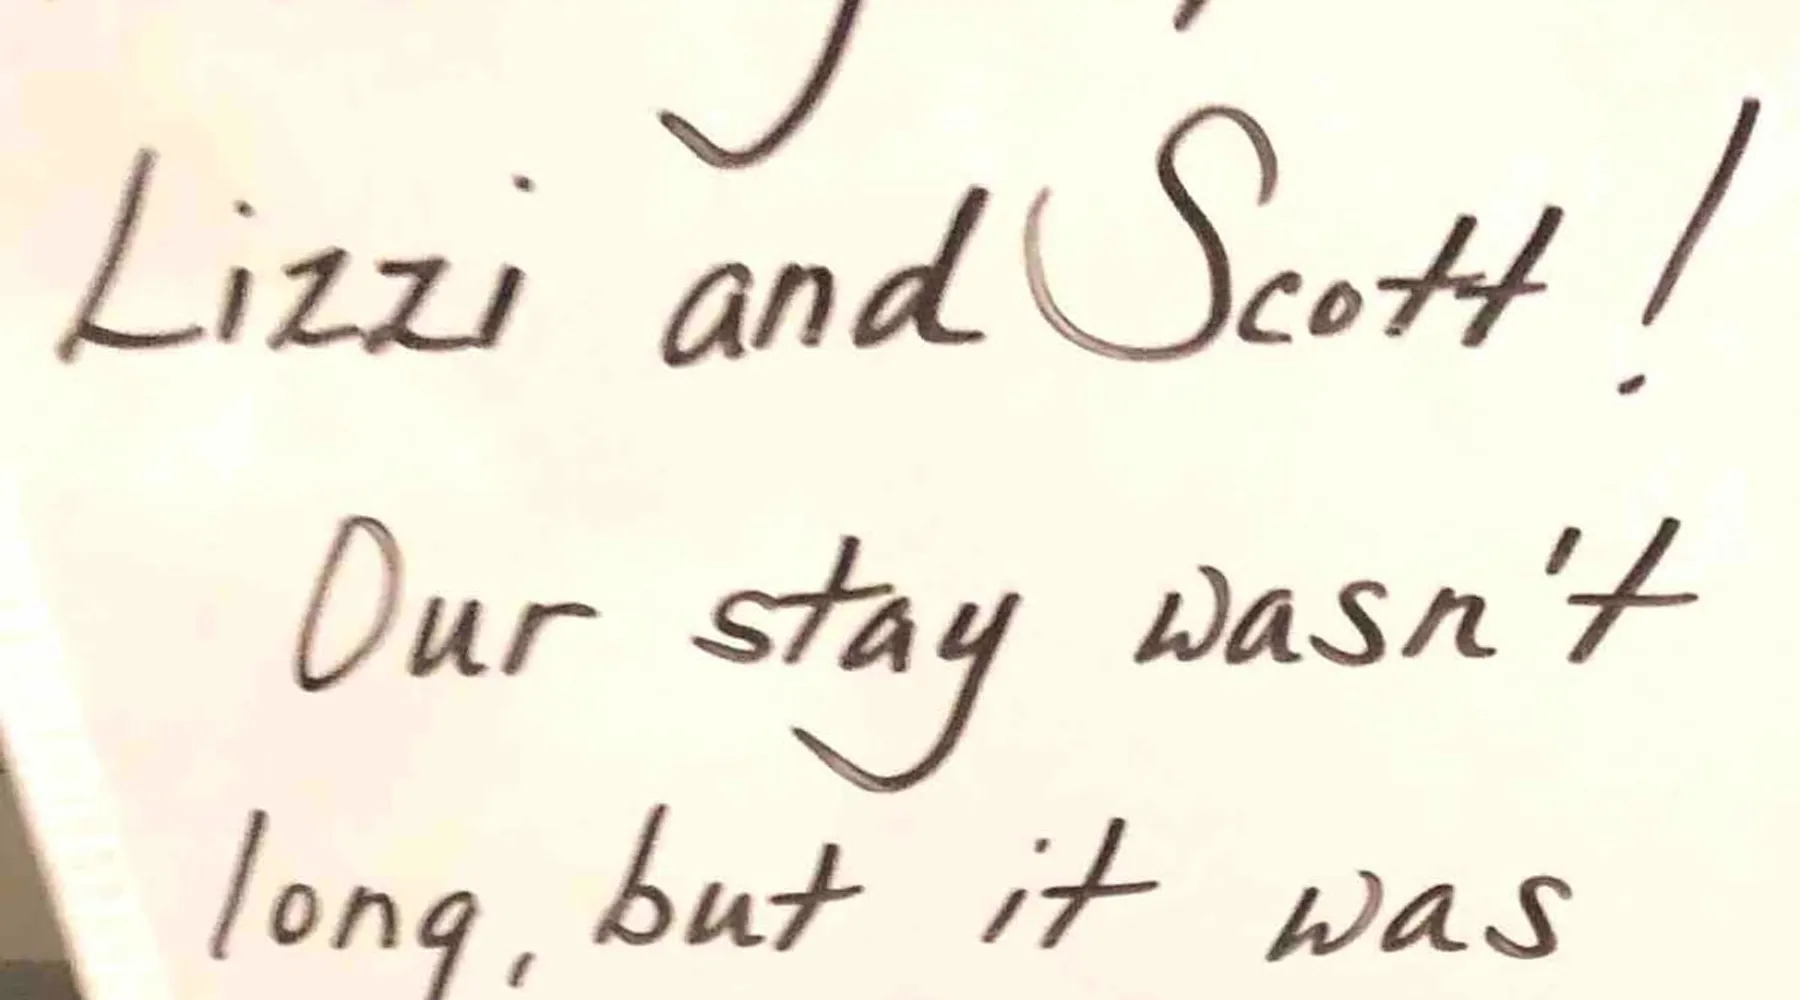 Lizzi and Scott!
Our stay wasn't
long, but it was